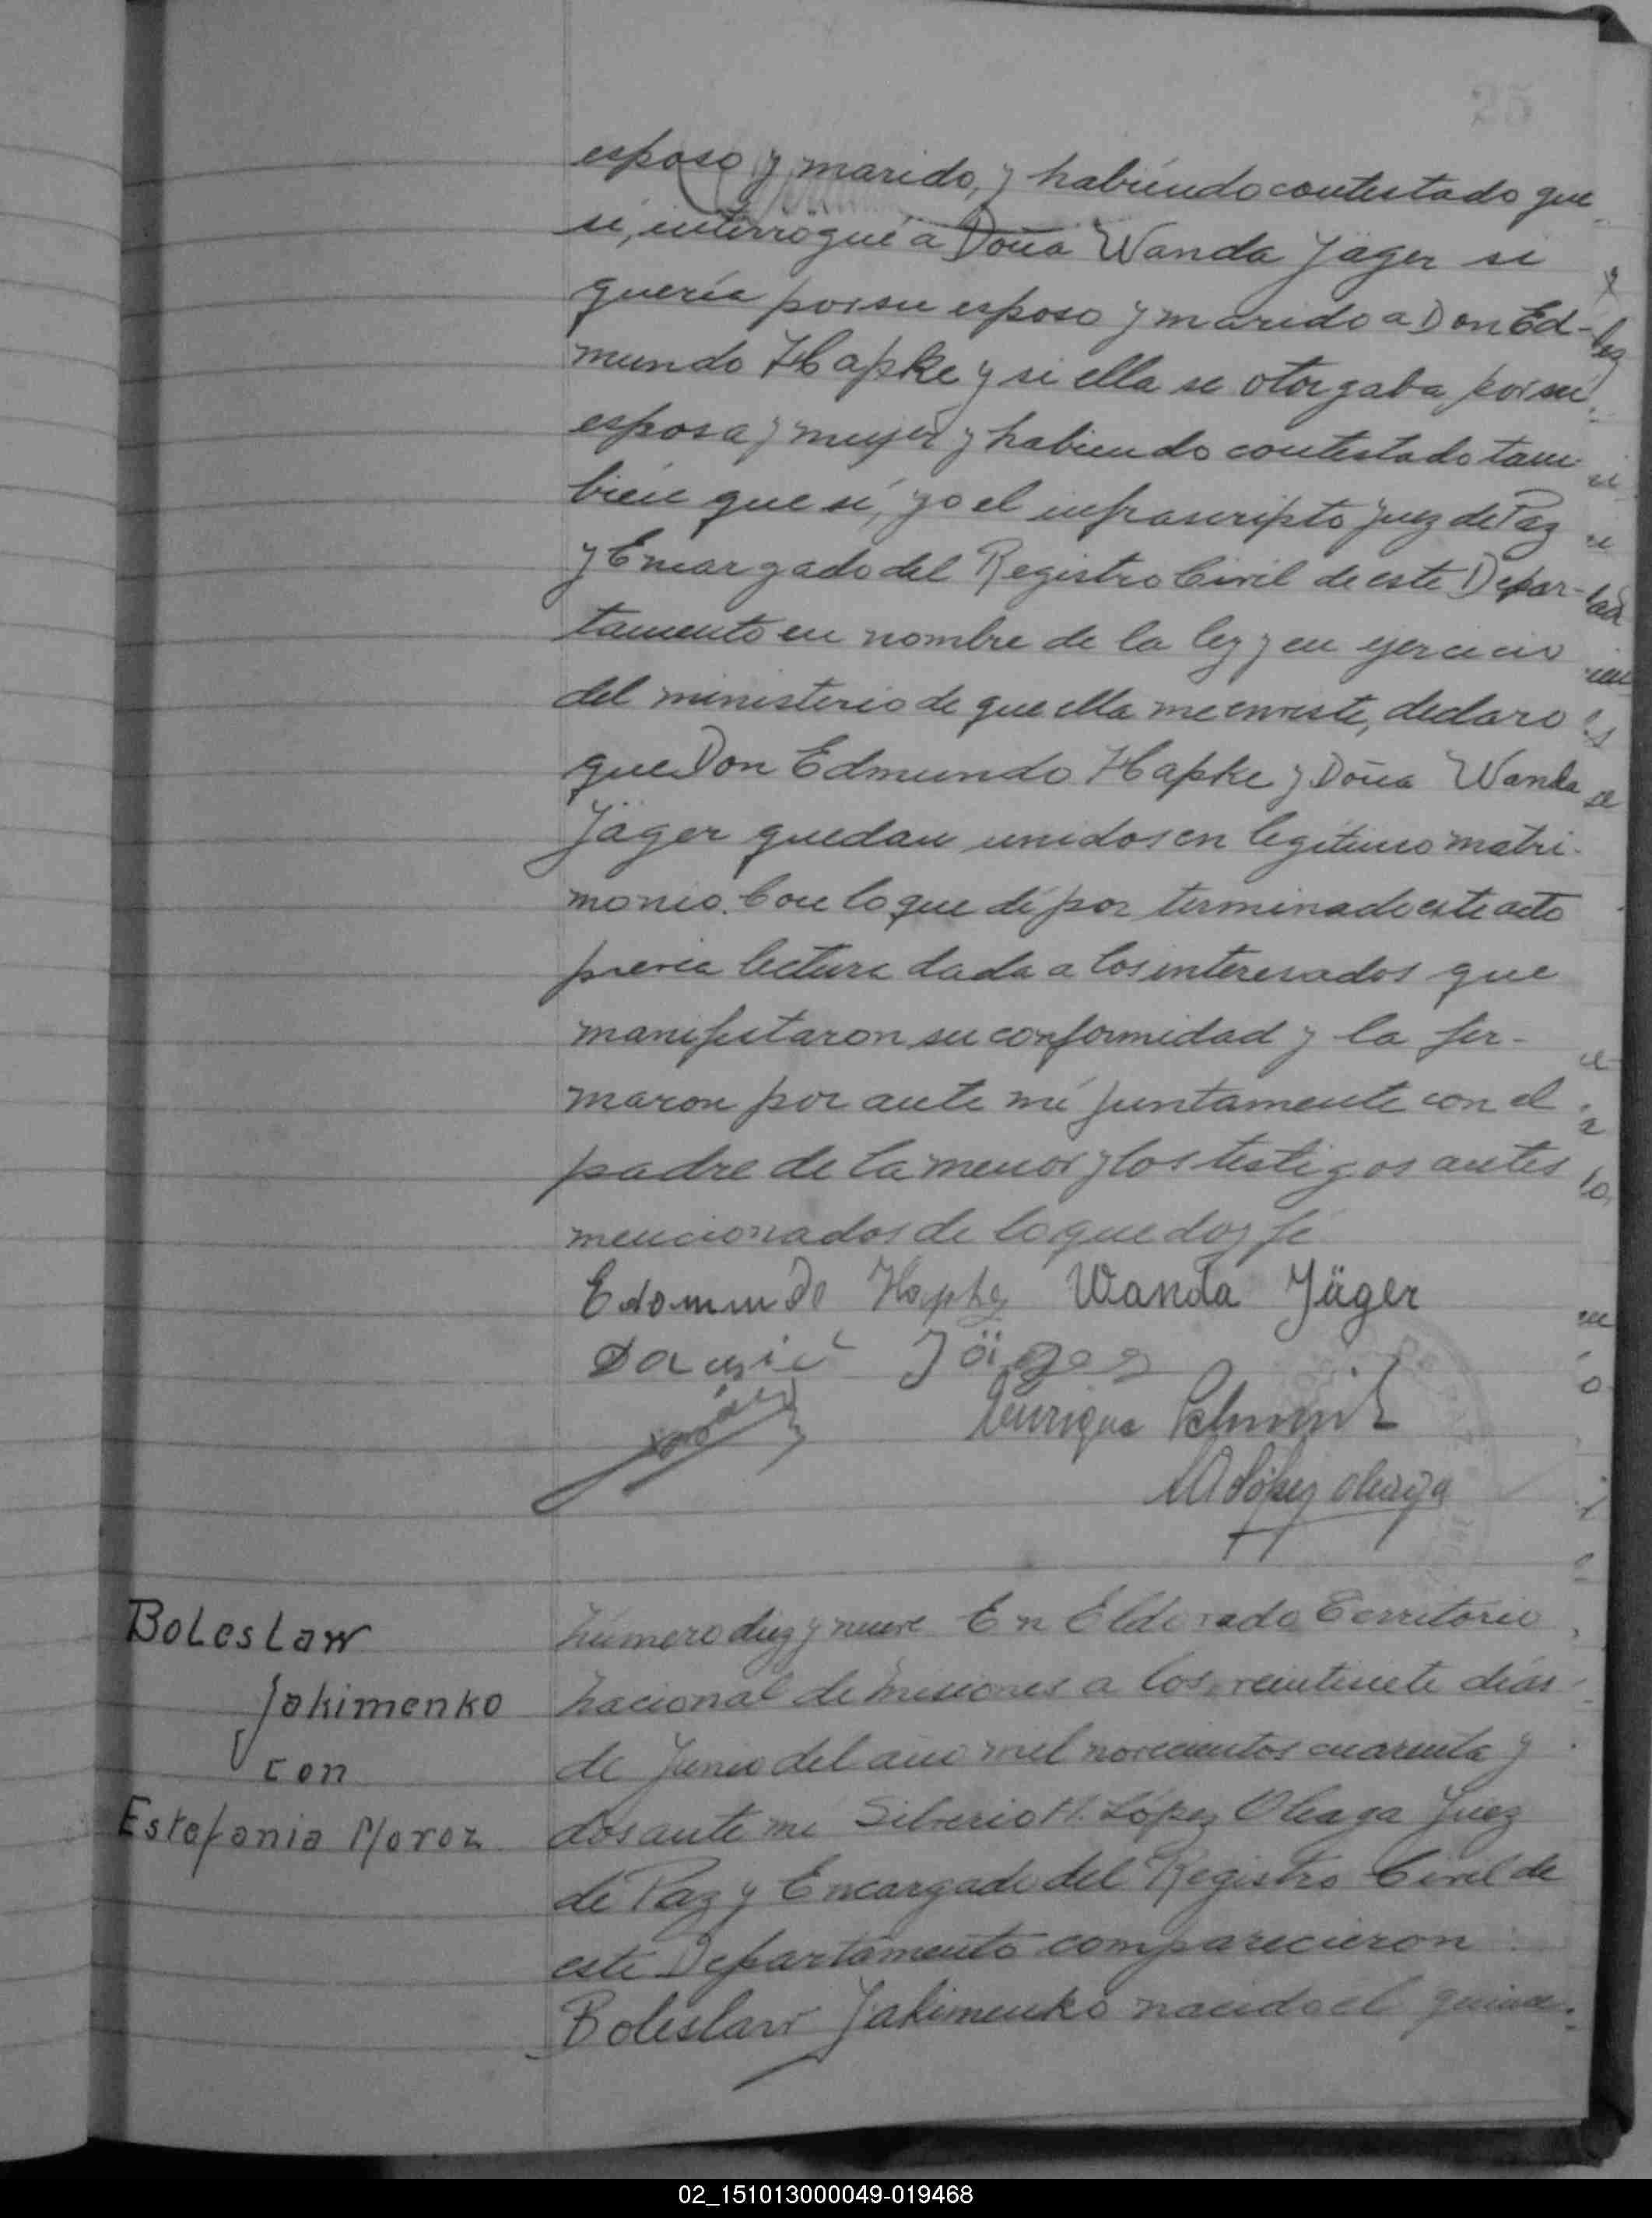 25
esposo y marido, y habiendo contestado que
si, interrogué a Doña Wanda Jäger si
quería por su esposo y marido a Don Ed-
mundo Hapke y si ella se otorgaba por su
esposa y mujer y habiendo contestado tam
bien que si, yo el infrascripto Juez de Paz
y Encargado del Registro Civil de este Depar-
tamento en nombre de la ley y en ejercicio
del ministerio de que ella me enviste, declaro
que Don Edmundo Hapke y Doña Wanda
Jäger quedan unidos en legítimo matri-
monio. Con lo que di por terminado este acto
previa lectura dada a los interesados que
manifestaron su conformidad y la fir-
maron por ante mi juntamente con el
padre de la menor y los testigos antes
mencionados de lo que doy fé
Edommundo Hapke Wanda Jäger
Jäger
Enrique Schmit
López Oleaga
Boleslaw
Jakimenko
con
Estefania Moroz
Número diez y nueve En Eldorado Territorio
Nacional de Misiones a los veintisiete días
de Junio del año mil novecientos cuarenta y
dos ante mi Silverio M. López Oleaga Juez
de Paz y Encargado del Registro Civil de
este Departamento comparecieron
Boleslaw Jakimenko nacido el quince
02_151013000049-019468